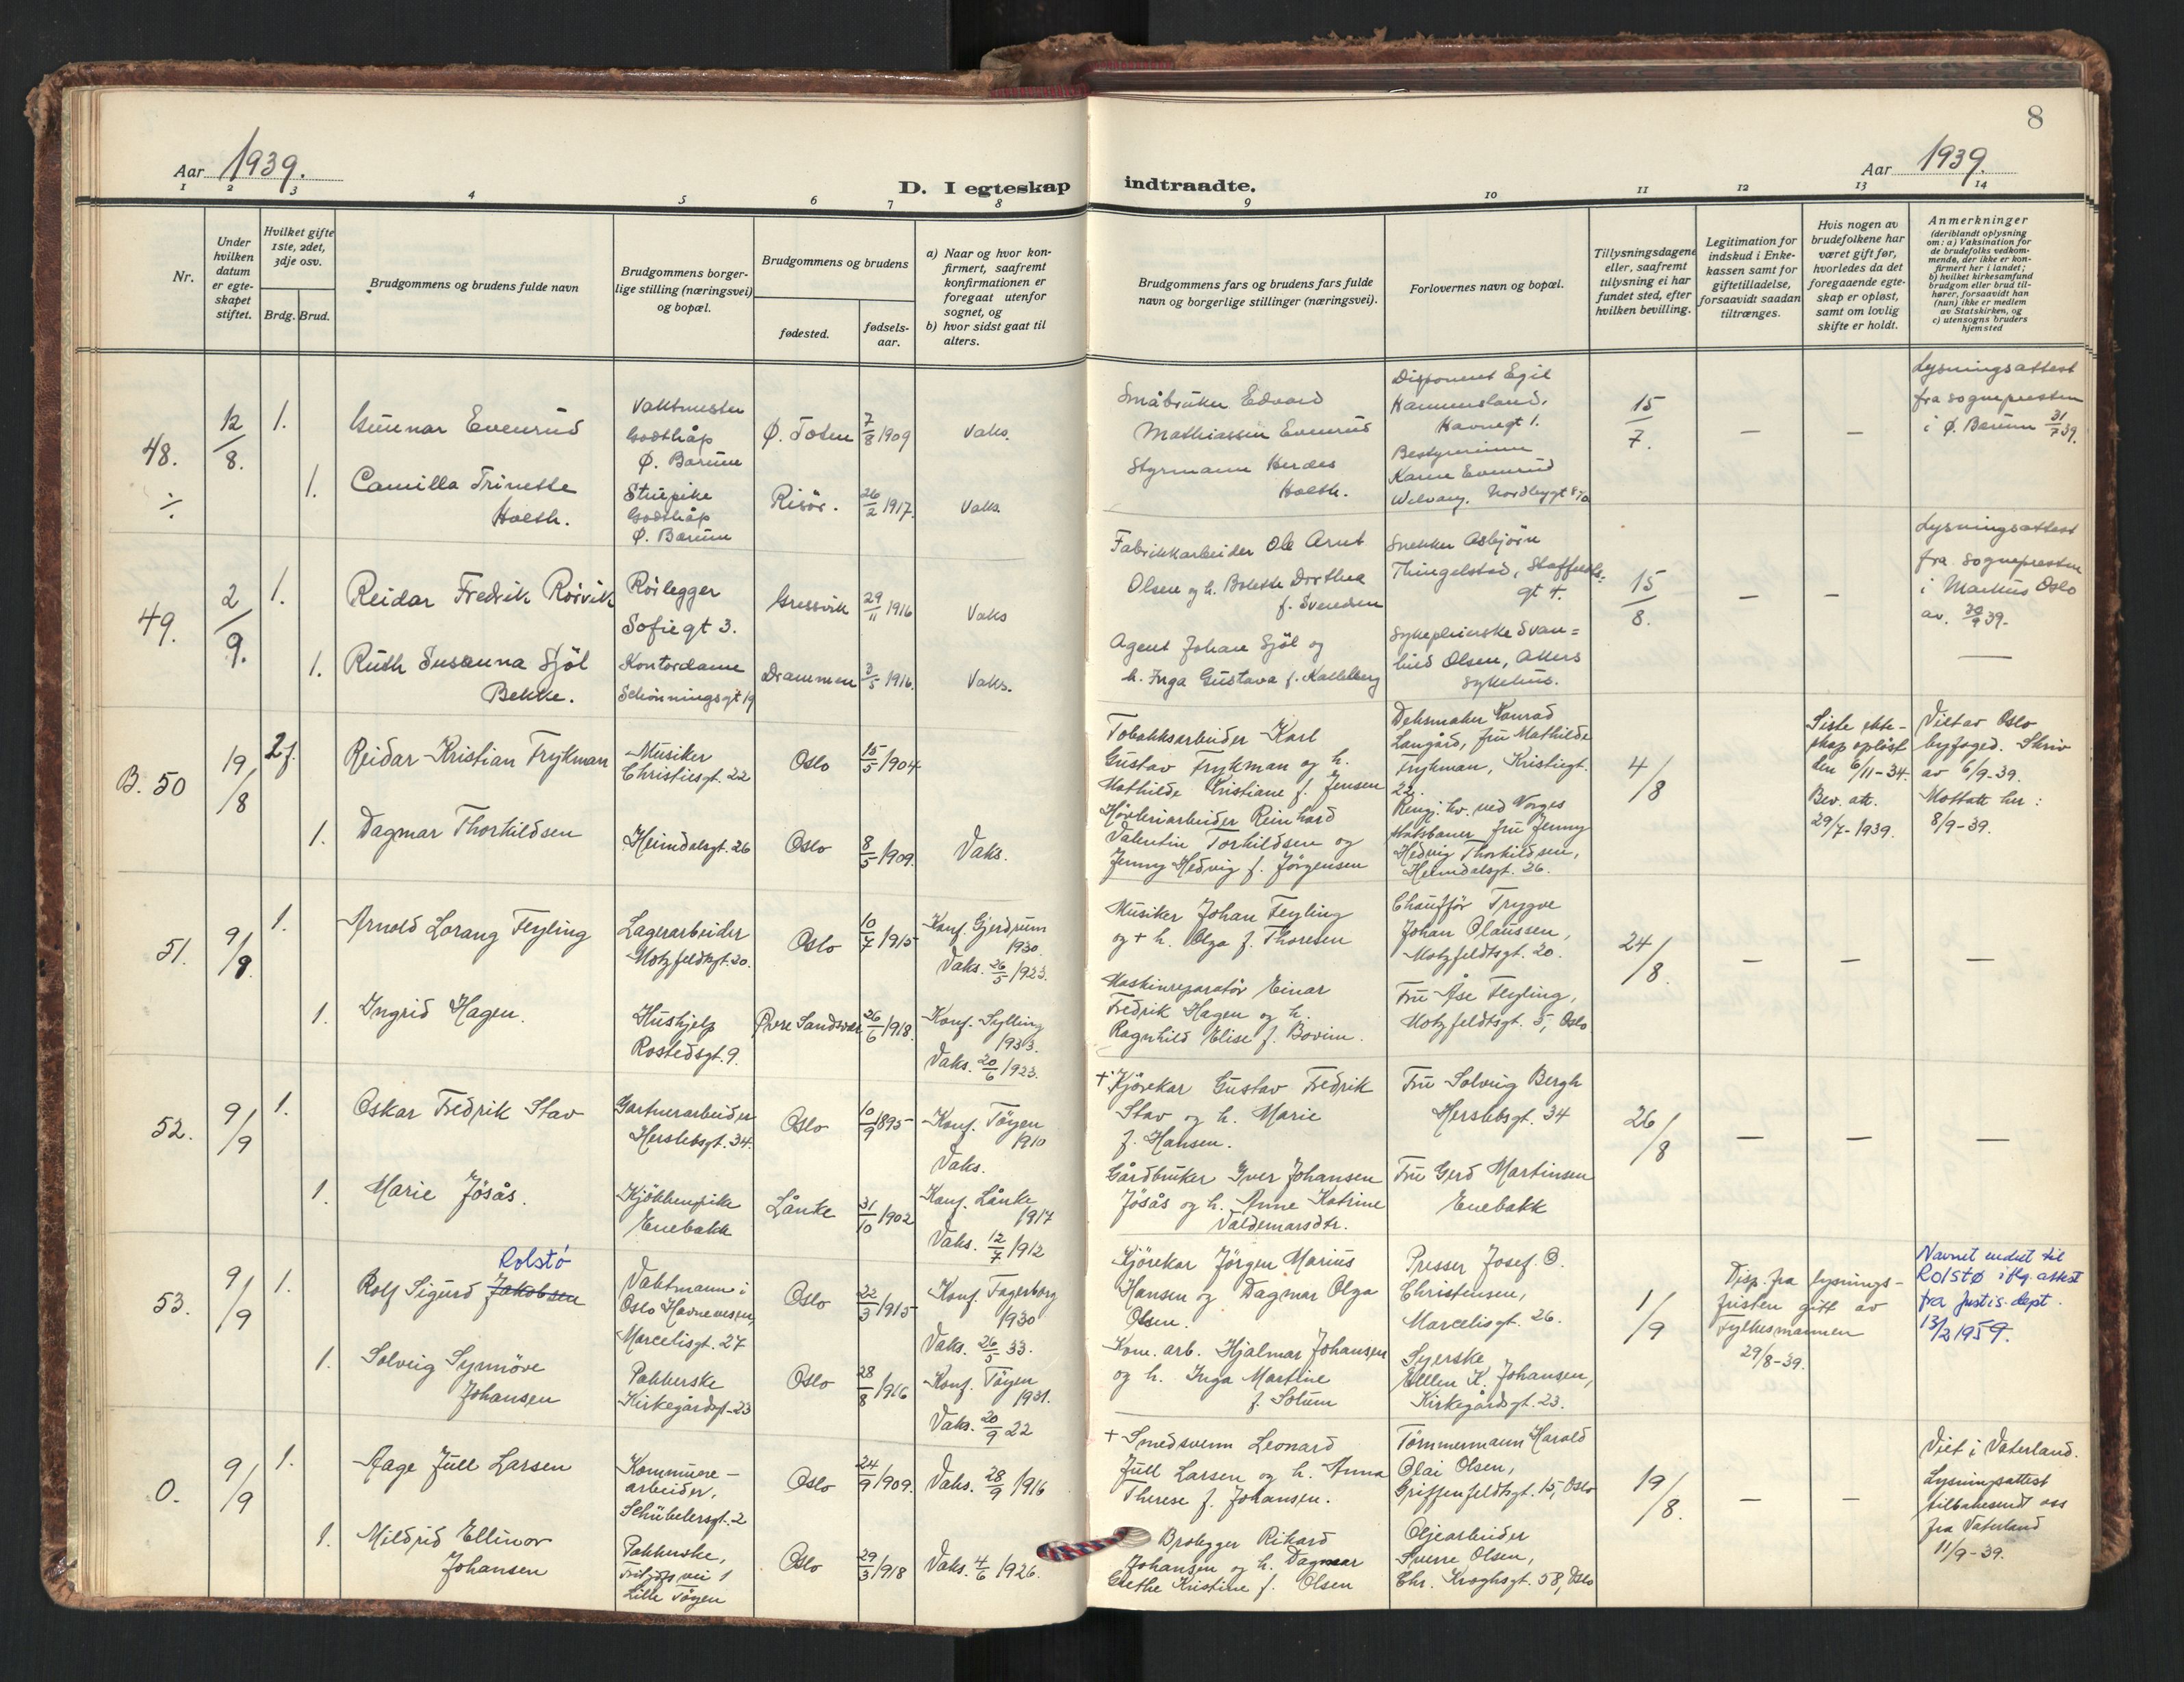 8
Aar 1939.
D. I egteskap indtraadte.
Aar 1939.
1 2 3 4 5 6 7 8 9 10 11 12 13 14
Nr.
Under hvilken datum er egteskapet stiftet.
Hvilket gifte 1ste, 2det, 3dje osv.
Brdg. Brud.
Brudgommens og brudens fulde navn
Brudgommens borgerlige stilling (næringsvei) og bopæl.
Brudgommens og brudens
fødested.
fødselsaar.
a) Naar og hvor konfirmert, saafremt konfirmationen er foregaat utenfor sognet, og
b) hvor sidst gaat til alters.
Brudgommens fars og brudens fars fulde navn og borgerlige stillinger (næringsvei).
Forlovernes navn og bopæl.
Tillysningsdagene eller, saafremt tillysning ei har fundet sted, efter hvilken bevilling.
Legitimation for indskud i Enkekassen samt for giftetilladelse, forsaavidt saadan tiltrænges.
Hvis nogen av brudefolkene har været gift før, hvorledes da det foregaaende egteskap er opløst, samt om lovlig skifte er holdt.
Anmerkninger
(deriblandt oplysning om: a) Vaksination for de brudefolks vedkommende, der ikke er konfirmert her i landet;
b) hvilket kirkesamfund brudgom eller brud tilhører, forsaavidt han (hun) ikke er medlem av Statskirken, og
c) utensogns bruders hjemsted
48. ÷
12/8.
1.
Gunnar Evenrud
Vaktmester
Godthåp
Ø. Bærum
Ø. Toten
7/8 1909
Vaks.
Småbruker Edvard
Mathiassen Evenrud
Disponent Egil
Hammersland,
Havnegt 1.
15/7.
—
—
Lysningsattest
fra sognepresten
i Ø. Bærum 31/7 39.
1.
Camilla Trinette
Holth.
Stuepike
Godthåp
Ø. Bærum
Risör.
26/2 1917.
Vaks.
Styrmann Herdes
Holth.
Bestyrerinne
Karen Evenrud
49.
2/9.
1.
Reidar Fredrik Rörvik
Rörlegger
Sofiegt 3.
Gressvik
29/11 1916
Vaks
Fabrikkarbeider Ole Arnt
Olsen og h. Bolette Dorthea
f. Svendsen
Snekker Asbjörn
Thingelstad, Staffeldtsgt 4.
15/8.
—
—
Lysningsattest
fra sognepresten
i Markus Oslo
av. 30/9 39.
—
1.
Ruth Susanna Sjöl
Bekke.
Kontordame
Schönningsgt 19
Drammen
3/5 1916.
Vaks.
Agent Johan Sjöl og
h. Inga Gustava f. Kallelberg
Sykepleierske Svan=
hild Olsen, Akers
sykehus.
B. 50
19/8
2 f.
Reidar Kristian Frykman
Musiker
Christiesgt. 22
Oslo
15/5 1904
Tobakksarbeider Karl
Gustav Frykman og h.
Mathilde Kristiane f. Jensen
Deksmaker Konrad
Langård, fru Mathilde
Frykman, Kristiegt.
22.
4/8
Siste ekte-
skap oplöst
den 6/11-34.
Bev. att.
29/7-1939.
Viet av Oslo
byfoged. Skriv
av 6/9-39.
Mottatt her:
8/9-39.
1.
Dagmar Thorkildsen
Heimdalsgt. 26
Oslo
8/5 1909.
Vaks.
Hövleriarbeider Reinhard
Valentin Torkildsen og
Jenny Hedvig f. Jörgensen
Rengj. hv. ved Norges
statsbaner fru Jenny
Hedvig Thorkildsen,
Heimdalsgt. 26.
51.
9/9.
1.
Arnold Lorang Flyling
Lagerarbeider
Motzfeldtsgt. 20.
Oslo
10/7 1915
Konf. Gjerdrum
1930.
Vaks. 26/5 1923.
Musiker Johan Flyling
og + h. Olga f. Thoresen
Chauffør Trygve
Johan Claussen,
Motzfeldtsgt. 20.
24/8.
—
—
—
1.
Ingrid Hagen.
Hushjelp
Rostedsgt. 9.
Övre Sandsvær
26/6 1918.
Konf. Sylling
1933.
Vaks. 20/6 1923.
Maskinreparatör Einar
Fredrik Hagen og h.
Ragnhild Elise f. Bovim.
Fru Åse Flyling,
Motzfeldtsgt. 5, Oslo
52.
9/9
1.
Oskar Fredrik Stav
Gartnerarbeider
Herslebsgt. 34.
Oslo
10/9 1895
Konf. Töyen
1910
Vaks.
+ Kjörekar Gustav Fredrik
Stav og h. Marie
f. Hansen.
Fru Solveig Bergh
Herslebsgt. 34
26/8
—
—
—
1.
Marie Jösås.
Kjökkenpike
Enebakk
Lånke
31/10 1902
Konf. Lånke
1917
Vaks. 12/7 1912
Gårdbruker Iver Johansen
Jösås og h. Anne Katrine
Valdemarsdtr.
Fru Gerd Martinsen
Enebakk
53.
9/9
1.
Rolstø
Rolf Sigurd Jakobsen
Vaktmann i
Oslo Havnevesen,
Marcelisgt. 27
Oslo
22/3 1915
Konf. Fagerborg
1930
Vaks. 26/5 33.
Kjörekar Jörgen Marius
Hansen og Dagmar Olga
Olsen.
Presser Josef. O.
Christensen,
Marcelisgt. 26.
1/9
Disp. fra lysnings-
fristen gitt av
Fylkesmannen
29/8-39.
Navnet endret til
ROlSTØ iflg. attest
fra Justis.dept.
13/2 1959.
1.
Solveig Synnöve
Johansen
Pakkerske
Kirkegårdsgt. 23
Oslo
28/8 1916
Konf. Töyen
1931.
Vaks. 20/9 22
Kom. arb. Hjalmar Johansen
og h. Inga Martine
f. Solum
Syerske
Ellen K. Johansen,
Kirkegårdsgt. 23.
0.
9/9
1.
Aage Juell Larsen
Kommune-
arbeider,
Schübelersgt. 2
Oslo
24/9 1909.
Vaks. 28/9 1916
+ Smedsvenn Leonard
Jull Larsen og h. Anna
Therese f. Johansen.
Tömmermann Harald
Olai Olsen,
Griffenfeldtsgt. 15, Oslo
19/8.
—
—
Viet i Vaterland.
Lysningsattest
tilbakesendt oss
fra Vaterland
11/9-39.
1.
Mildrid Ellinor
Johansen
Pakkerske,
vei 1
Lille Töyen
Oslo
29/3 1918
Vaks. 4/6 1926.
Brolegger Rikard
Johansen og h. Dagmar
Grethe Kristine f. Olsen
Oljearbeider
Sverre Olsen,
Chr. Kroghsgt. 58, Oslo